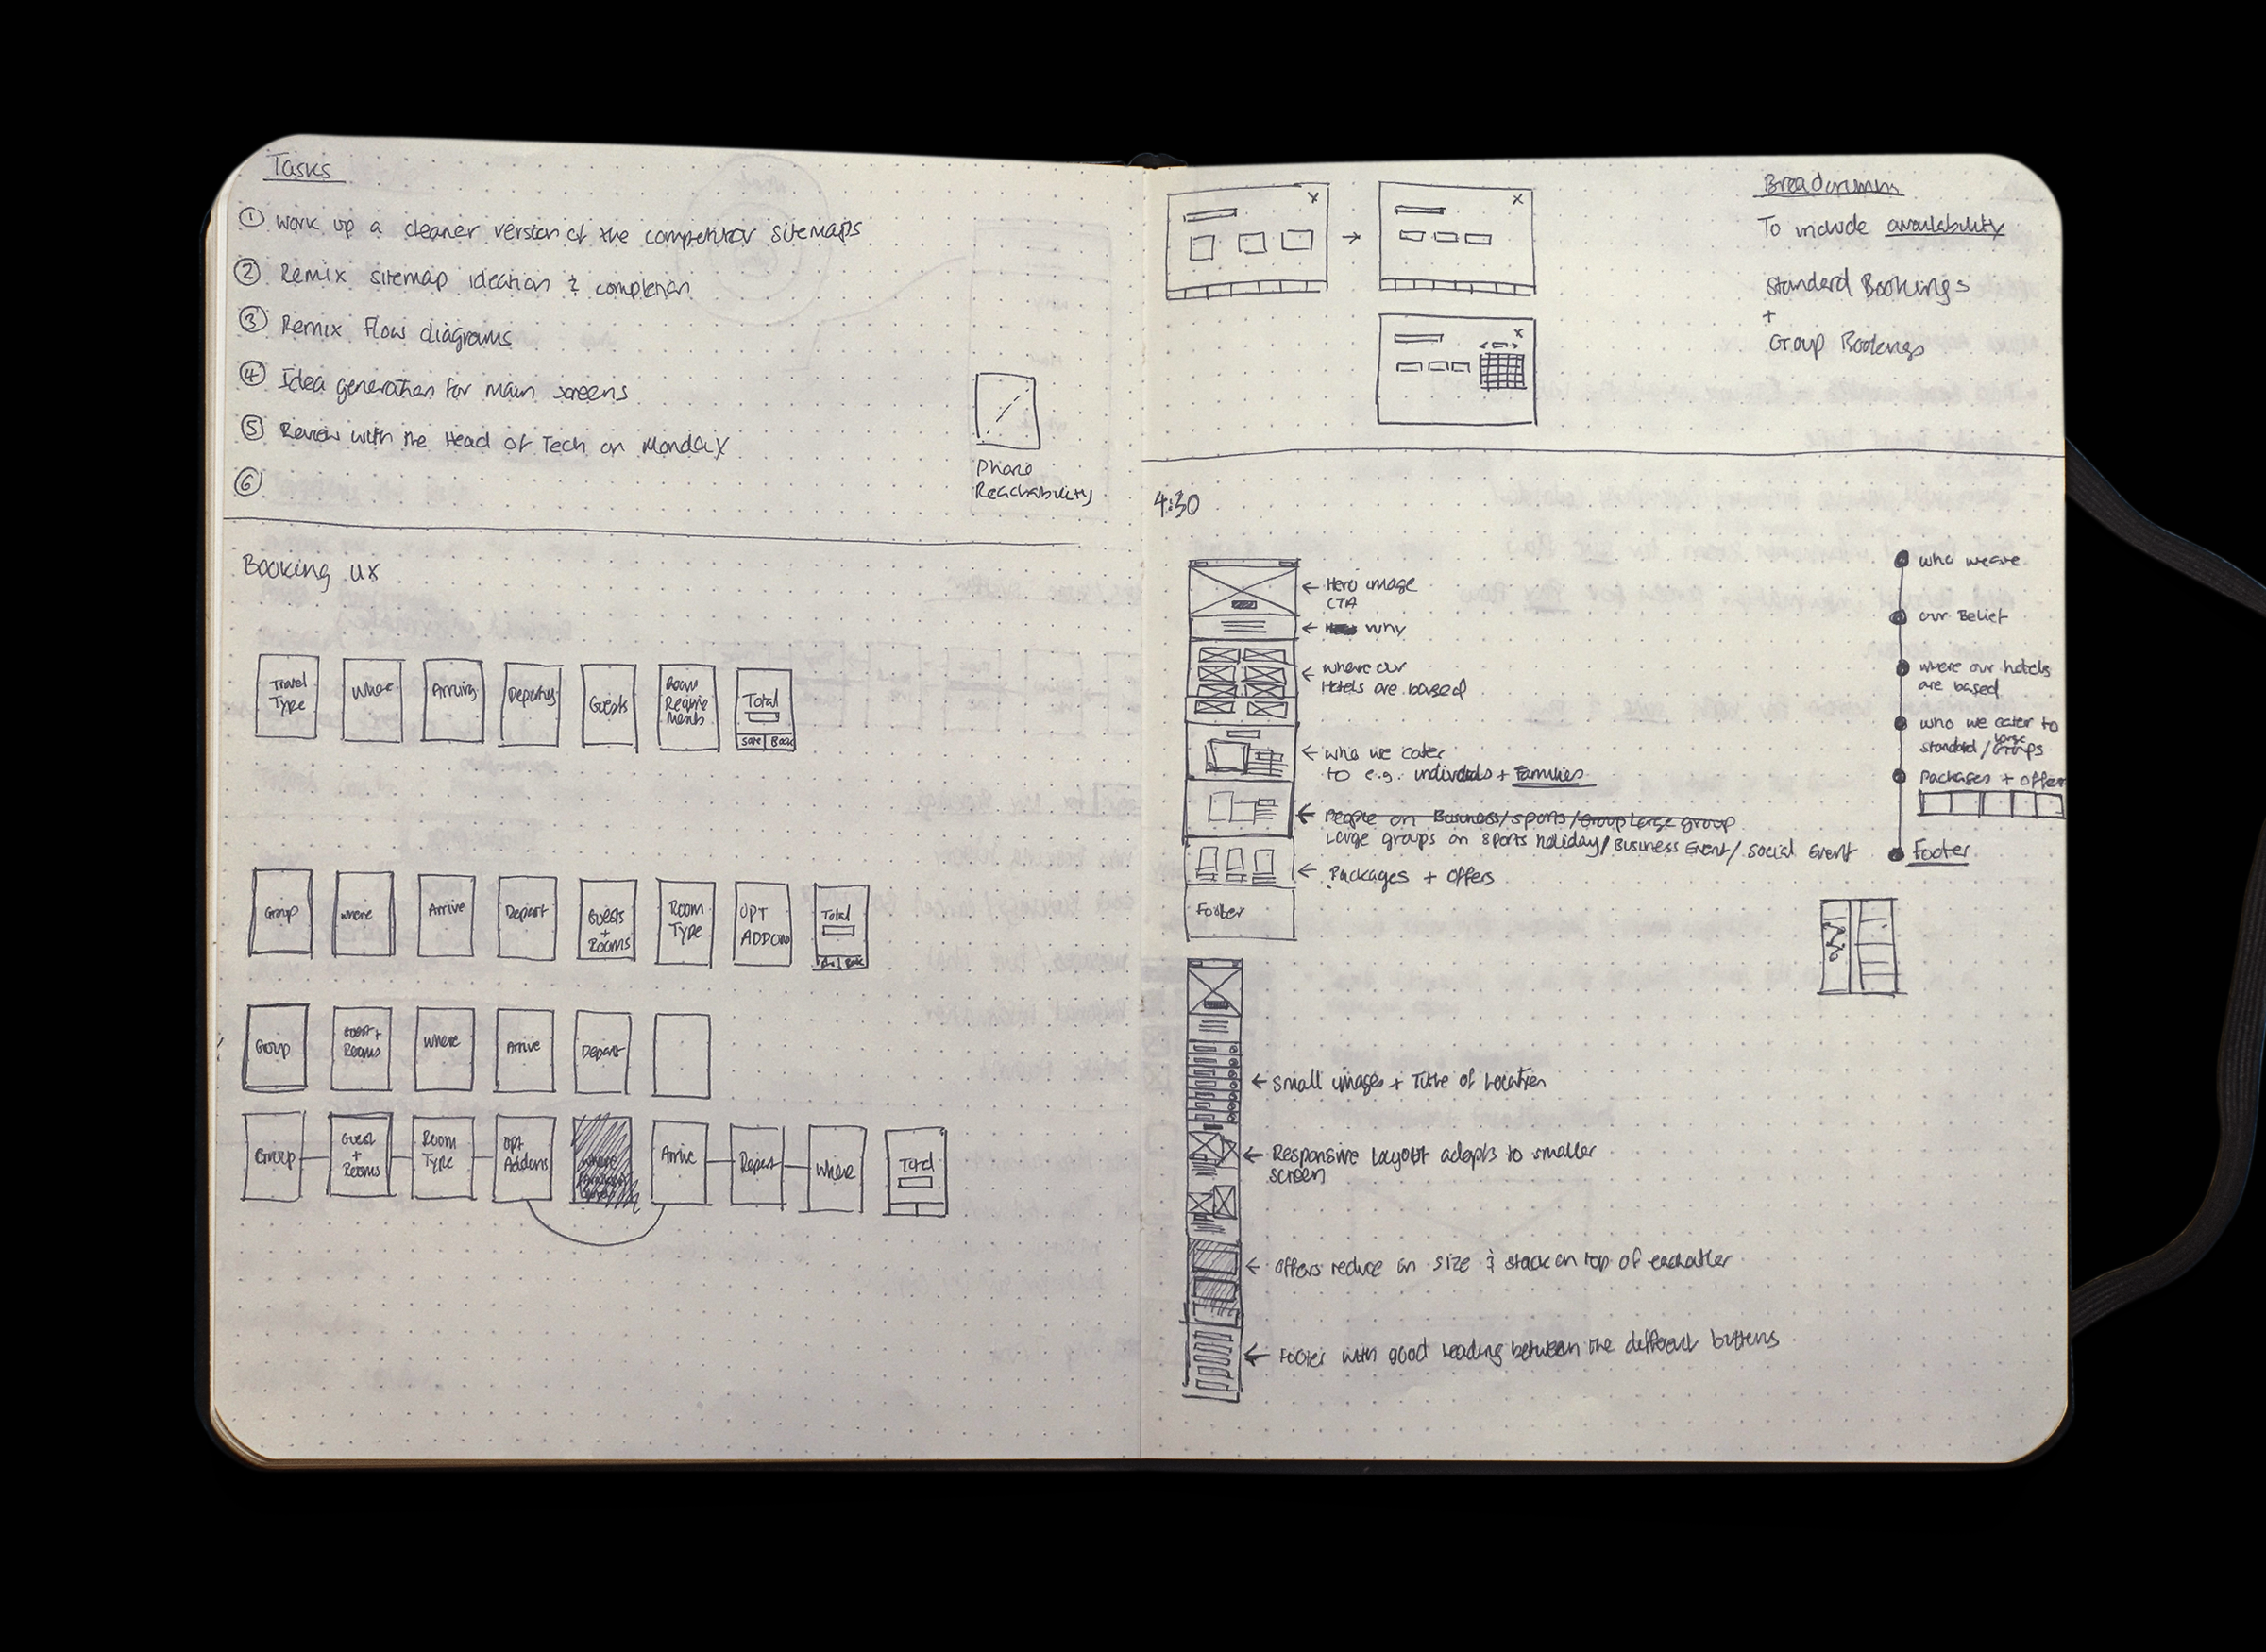 Tasks
① Work up a cleaner version of the competitor sitemaps
② Remix sitemap ideation & completion
③ Remix Flow diagrams
④ Idea generation for main screens
⑤ Review with the Head of Tech on Monday
⑥
Phone
Reachability
Booking UX
Travel
Type
Where
Arriving
Departing
Guests
Room
Require
ments
Total
Save
Book
Group
Where
Arrive
Depart
Guests
+
Rooms
Room
Type
OPT
ADDONS
Total
Group
Guest +
Rooms
Where
Arrive
Depart
Group
Guest
+
Rooms
Room
Type
Opt
Addons
Where
Arrive
Depart
Where
Total
X
X
X
Breadcrumbs
To include availability
Standard Bookings
+
Group Bookings
4:30
← Hero image
CTA
← Why
← Where our
Hotels are based
← Who we cater
to e.g. individuals + Families
← People on Business/sports/Group Large group
Large groups on sports holiday/Business Event/Social Event
← Packages + Offers
Footer
who we are
our Belief
where our hotels
are based
who we cater to
standard/large Groups
Packages + Offers
Footer
← Small images + Title of Location
← Responsive Layout adapts to smaller
screen
← Offers reduce in size & stack on top of eachother
← Footer with good leading between the different buttons